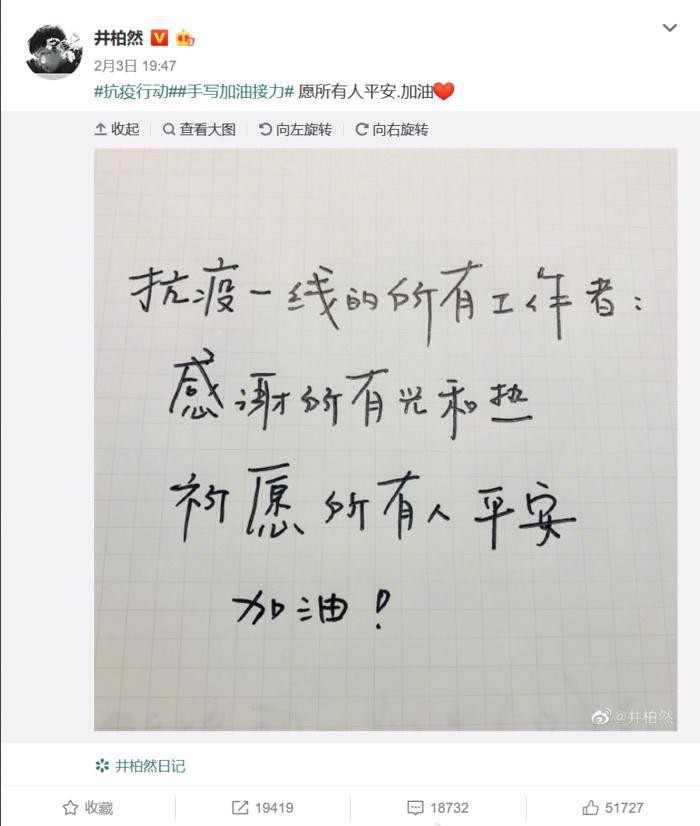 井柏然
2月3日 19:47
#抗疫行动##手写加油接力# 愿所有人平安.加油❤
收起 查看大图 向左旋转 向右旋转
抗疫一线的所有工作者：
感谢所有光和热
祈愿所有人平安
加油！
@井柏然
井柏然日记
收藏 19419 18732 51727